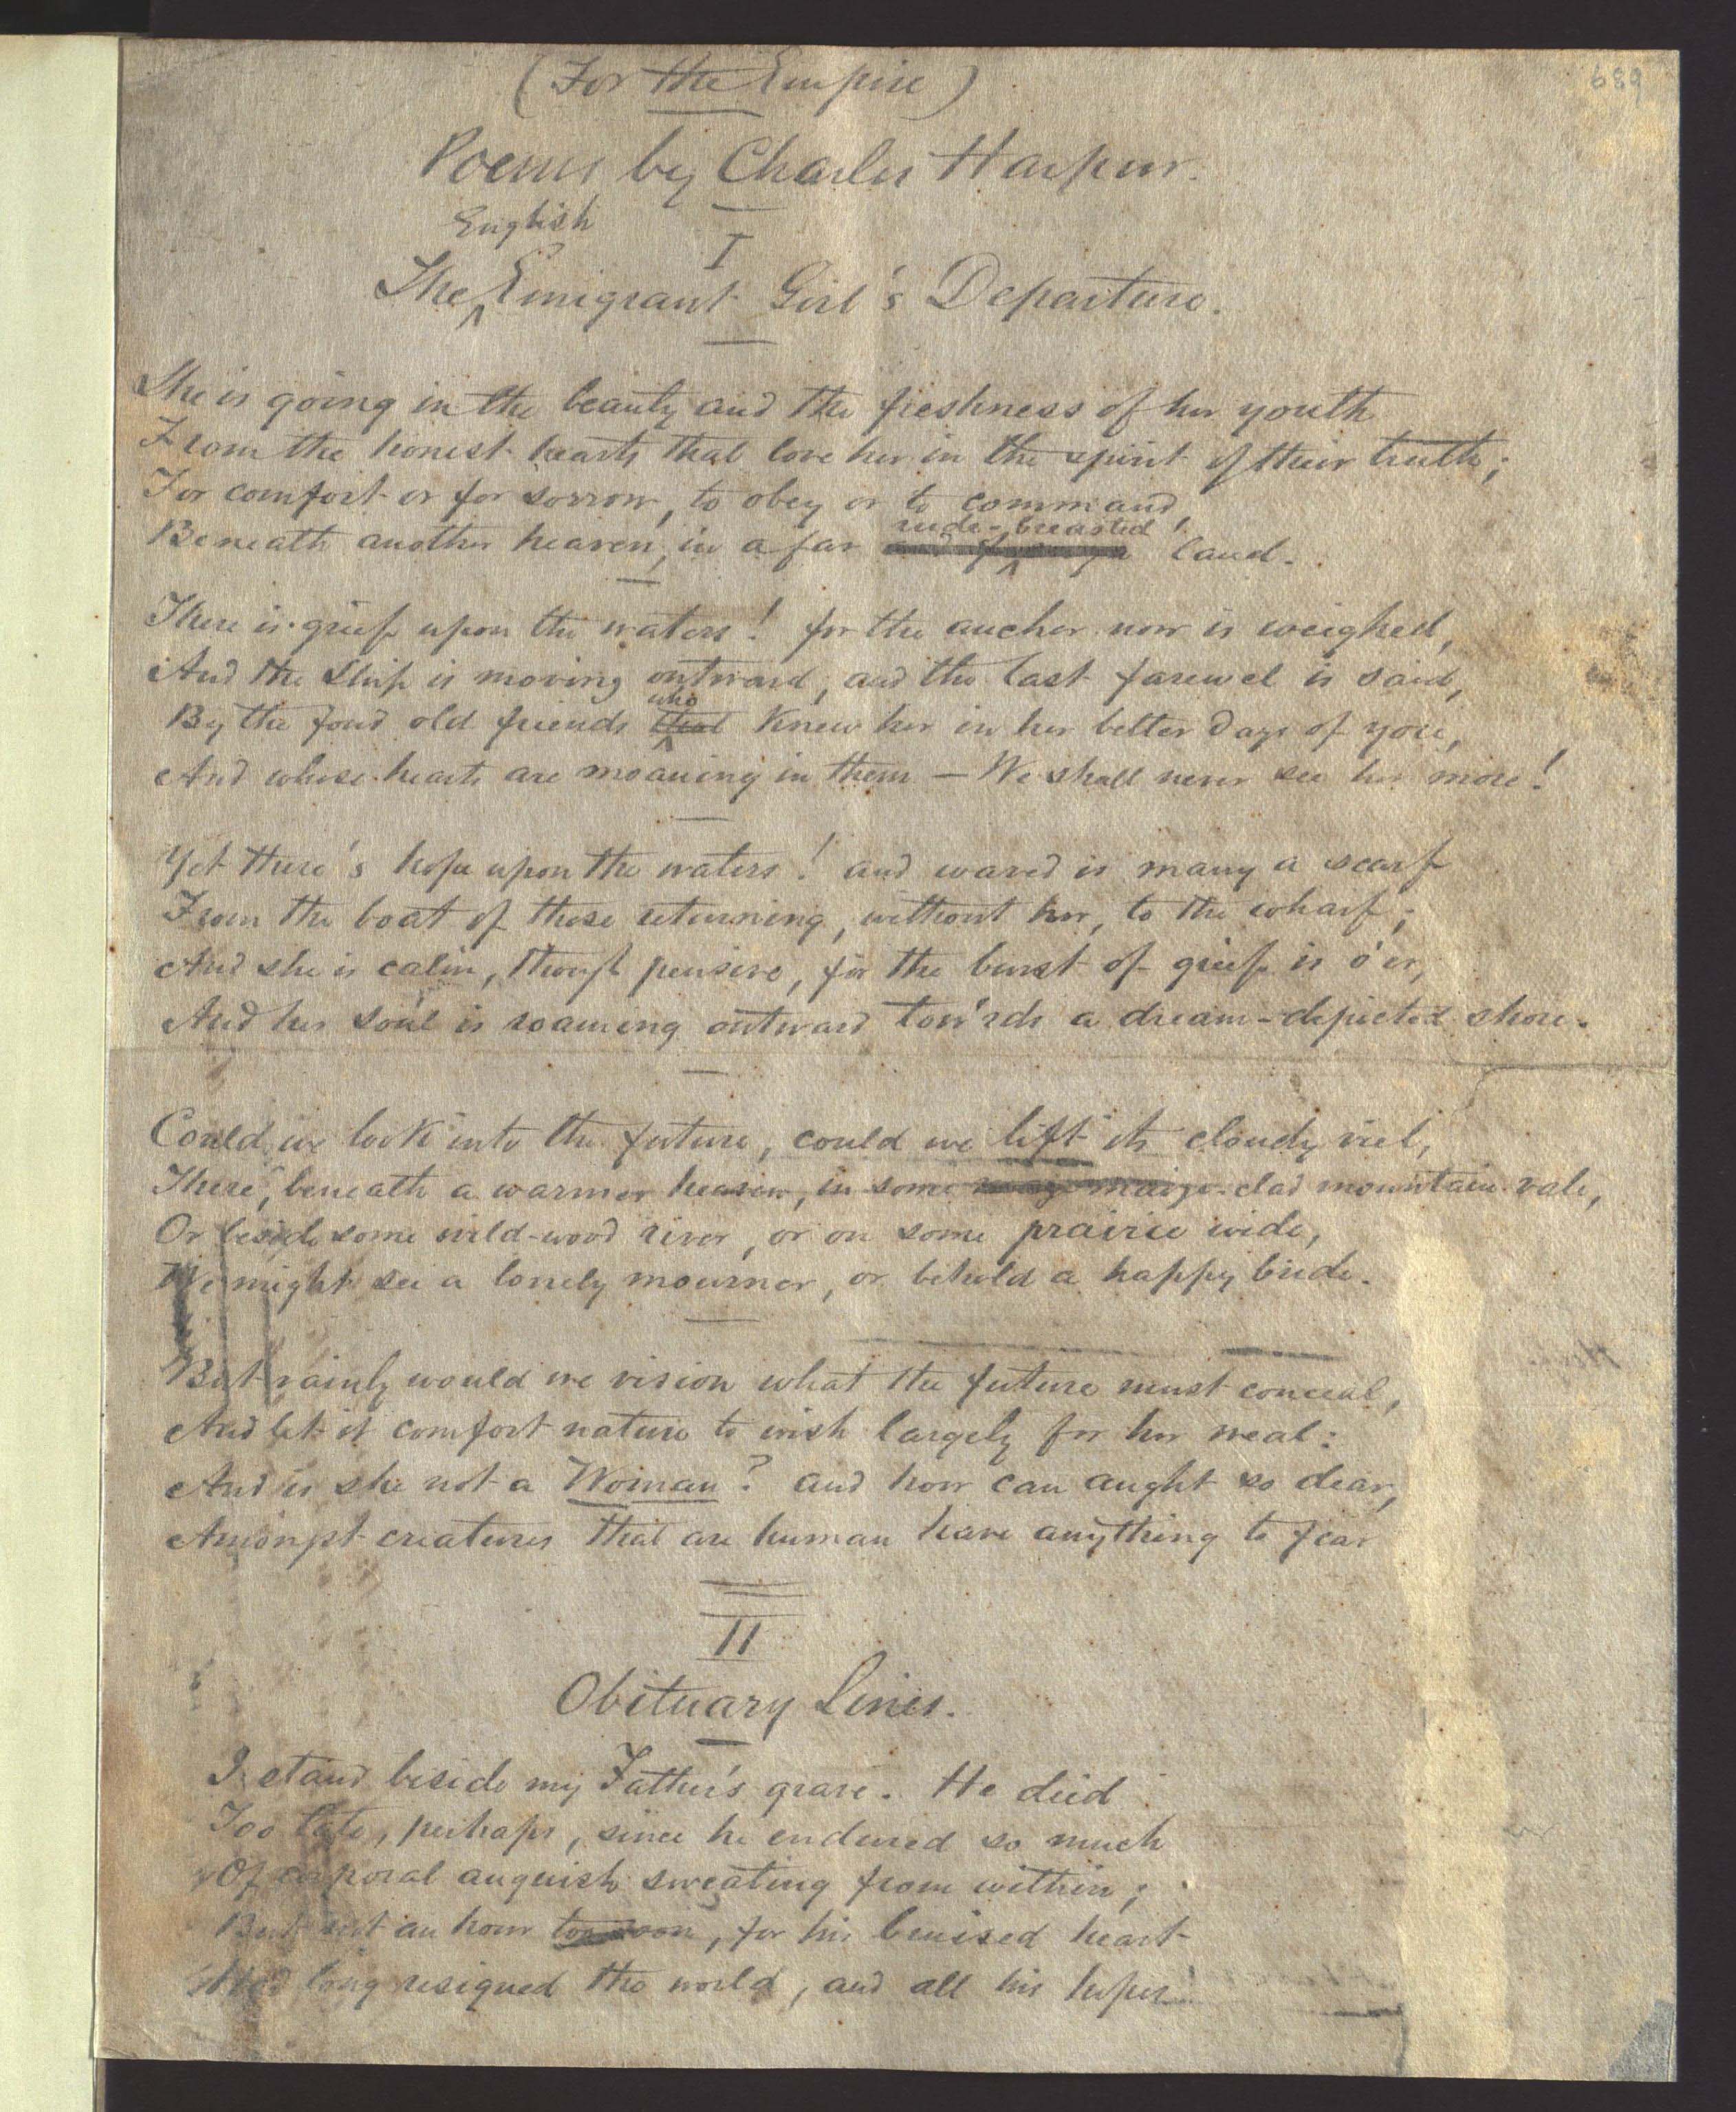 (For the Empire)
689
Poems by Charles Harpur.
English
I
The ^ Emigrant Girl's Departure.
She is going in the beauty and the freshness of her youth
From the honest hearts that love her in the spirit of their truth;
For comfort or for sorrow, to obey or to command,
rude-breasted
Beneath another heaven, in a far land.
There is grief upon the waters! for the anchor now is weighed,
And the Ship is moving outward, and the last farewel is said,
who
By the fond old friends that knew her in her better days of yore,
And whose hearts are moaning in them — We shall never see her more!
Yet there's hope upon the waters! and waved is many a scarf
From the boat of those returning, without her, to the wharf;
And she is calm, though pensive, for the burst of grief is o'er,
And her soul is roaming outward tow'rds a dream-depicted shore.
Could we look into the future, could we lift its cloudy viel,
There, beneath a warmer heaven, in some maize-clad mountain vale,
Or beside some wild-wood river, or on some prairie wide,
We might see a lonely mourner, or behold a happy bride.
But vainly would we vision what the future must conceal,
And let it comfort nature to wish largely for her weal:
And is she not a Woman? and how can aught so dear,
Amongst creatures that are human have anything to fear
II
Obituary Lines.
I stand beside my Father's grave. He died
Too late, perhaps, since he endured so much
Of corporal anguish sweating from within;
But not an hour too soon, for his bruised heart
Had long resigned the world, and all his hopes